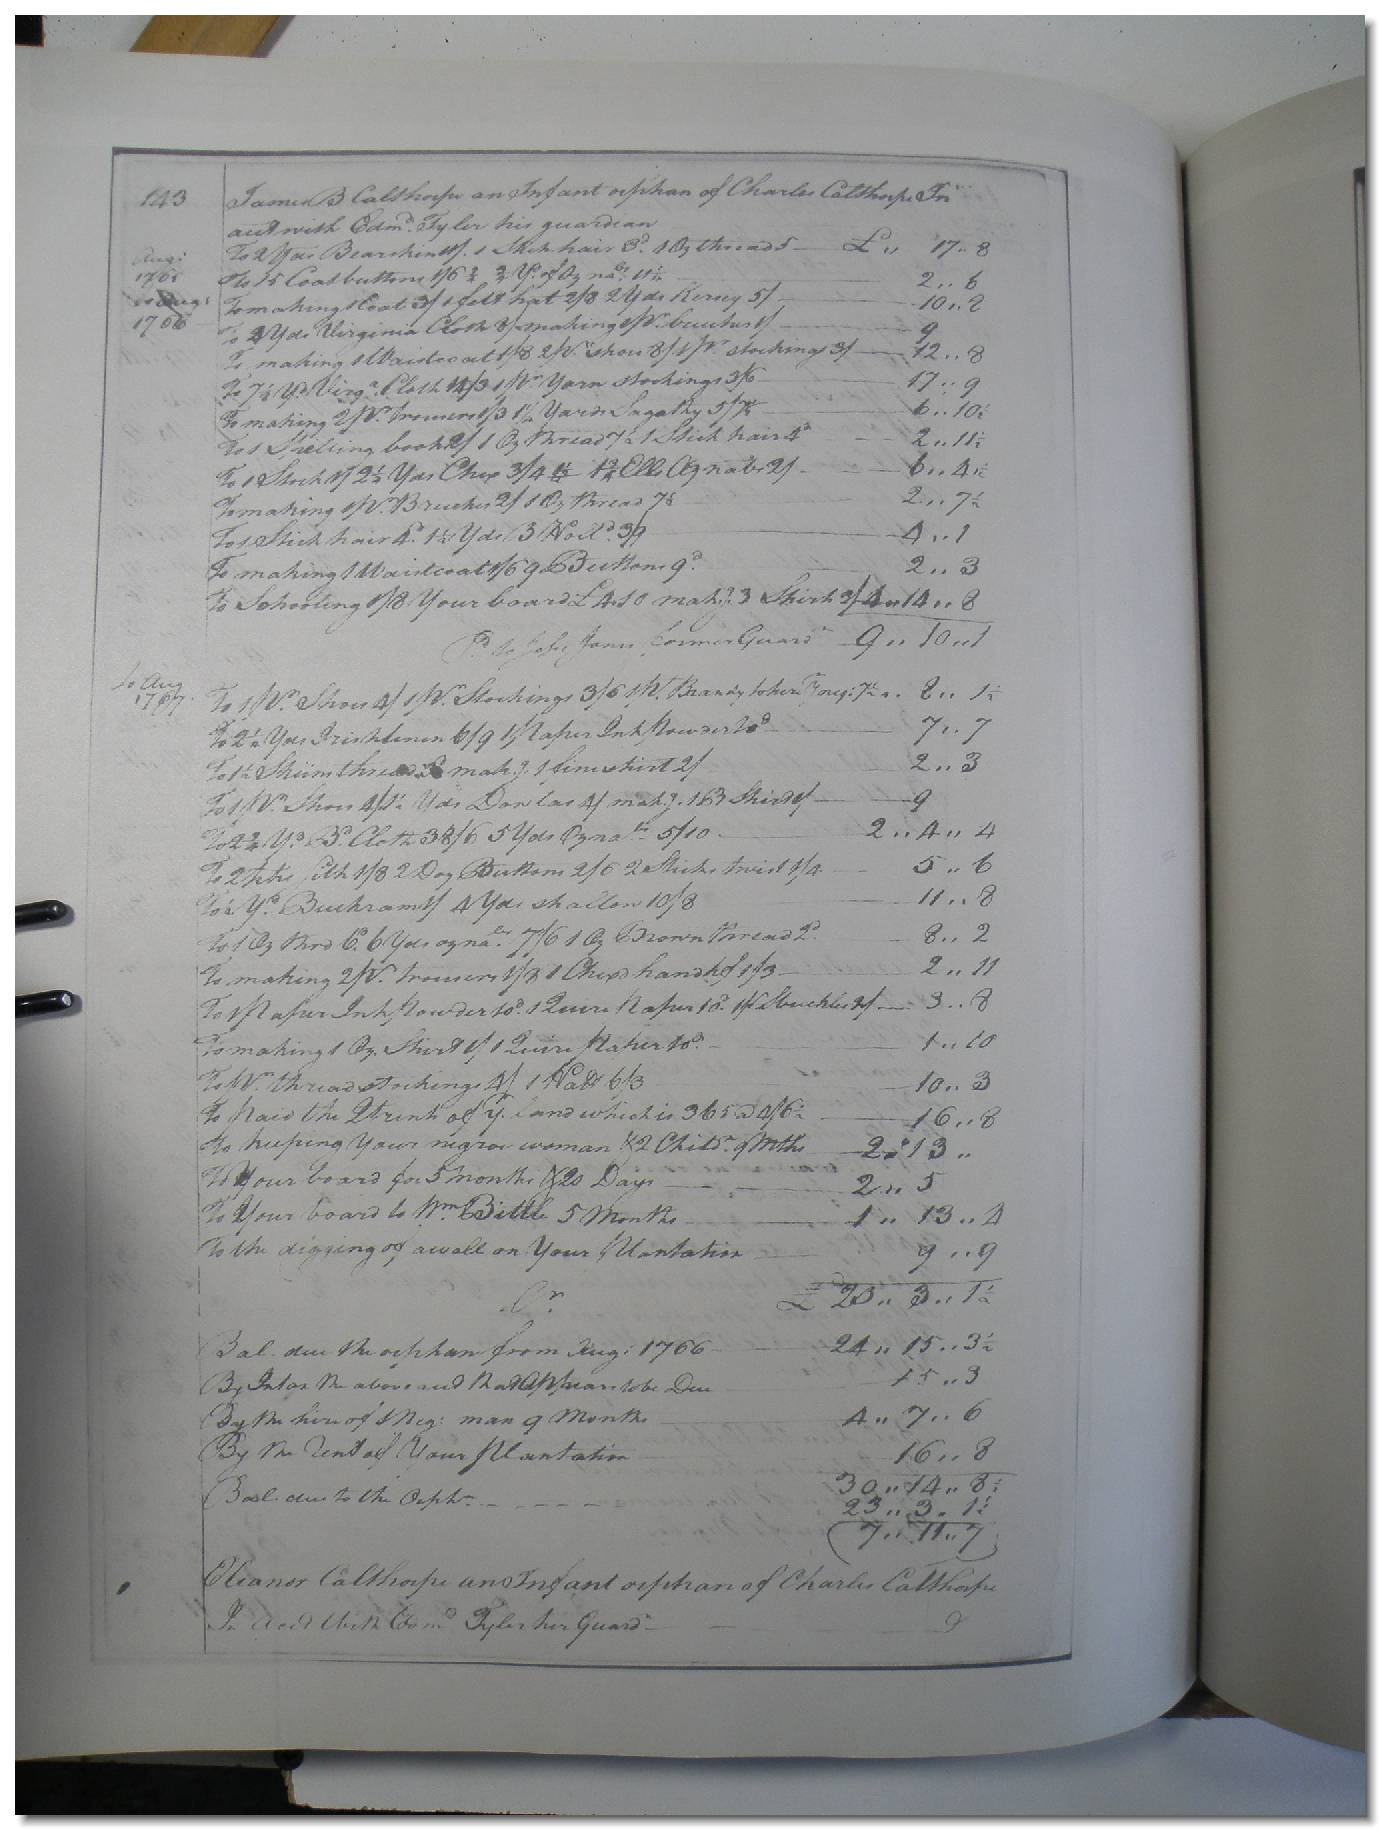 143
James B Calthorpe an Infant orphan of Charles Calthorpe In
acct with Edmd. Tyler his guardian
Aug:
1765
to Aug:
1766
To 2 Yds Bearskin 1 Stick hair 3d. 1 Oz thread 5 — £ „ 17 „ 8
To 15 Coat buttons 1/6 — 2 „ 6
To making 1 Coat 3/ 1 felt hat 2/8 2 Yds Kersey 5/ — 10 „ 2
To 4 Yds Virginia Cloth 8/ making 1 Pr. breeches 1/ — 9
To making 1 Waistcoat 1/8 2 Pr. shoes 8/ 1 Pr. stockings 3/ — 12 „ 8
To 7½ Yds Virga. Cloth 14/3 1 Pr. Yarn stockings 3/6 — 17 „ 9
To making 2 Pr. trousers 1/3 1½ Yards Sagathy 5/7½ — 6 „ 10½
To 1 Spelling book 2/ 1 Oz thread 7½ 1 Stick hair 4d — 2 „ 11½
To 1 Stock 1/ 2½ Yds Chex 3/4½ Ells Oznabs 2/ — 6 „ 4½
To making 1 Pr. Breeches 2/ 1 Oz thread 7½ — 2 „ 7½
To 1 Stick hair 4d. 1½ Yds B Holld. 3/9 — 4 „ 1
To making 1 Waistcoat 1/6 9 Buttons 9d. — 2 „ 3
To Schooling 1/8 Your board £4.10 makg. 3 Shirts 3/ 4 „ 14 „ 8
Pd. to Jones former Guardn 9 „ 10 „ 1
to Aug
1767
To 1 Pr. Shoes 4/ 1 Pr. Stockings 3/6 1 Pt. Brandy 7½ „ 8 „ 1½
To 2¼ Yds Irish linen 6/9 1 Paper Ink powder 10d — 7 „ 7
To 1½ Skiins thread makg. 1 fine shirt 2/ — 2 „ 3
To 1 Pr. Shoes 4/ Yds Dowlas 4/ makg. Shirt 1/ — 9
To 2¾ Yds Bd. Cloth 38/6 5 Yds Ozna 5/10 — 2 „ 4 „ 4
To silk 1/8 2 Doz Buttons 2/6 2 Sticks twist 1/4 — 5 „ 6
To ½ Yd. Buckram 1/ 4 Yds shalloon 10/8 — 11 „ 8
To 1 Oz thrd 6d. 6 Yds ozna. 7/6 1 Oz Brown thread 2d. — 8 „ 2
To making 2 Pr. trousers 1/8 1 Chex handkf 1/3 — 2 „ 11
To 1 Paper Ink Powder 10d. 1 Quire Paper 10d. 1 Pr Sbuckles 2/ — 3 „ 8
To making 1 Oz. Shirt 1/ 1 Quire Paper 10d. — 1 „ 10
To 1 Pr. thread stockings 4/ 1 Hatt 6/3 — 10 „ 3
To Paid the Qtrents of Yr. land which is 365 a 4/6½ — 16 „ 8
To keeping Your negroe woman & 2 Childn. 9 Mths — 2 „ 13 „
To Your board for 5 months & 20 Days — 2 „ 5
To Your board to Wm Bittle 5 Months — 1 „ 13 „ 4
To the digging of a well on Your Plantation — 9 „ 9
£ 23 „ 3 „ 1½
Cr.
Bal. due the orphan from Aug: 1766 — 24 „ 15 „ 3½
By Int on the above acct that Appears to be Due — 15 „ 3
By the hire of 1 Neg: man 9 Months — 4 „ 7 „ 6
By the Rent of Your Plantation — 16 „ 8
30 „ 14 „ 8½
Bal. due to the Orphn. - - - - 23 „ 3 „ 1½
7 „ 11 „ 7
Eleanor Calthorpe an Infant orphan of Charles Calthorpe
In acct With Edmd Tyler her Guardn —